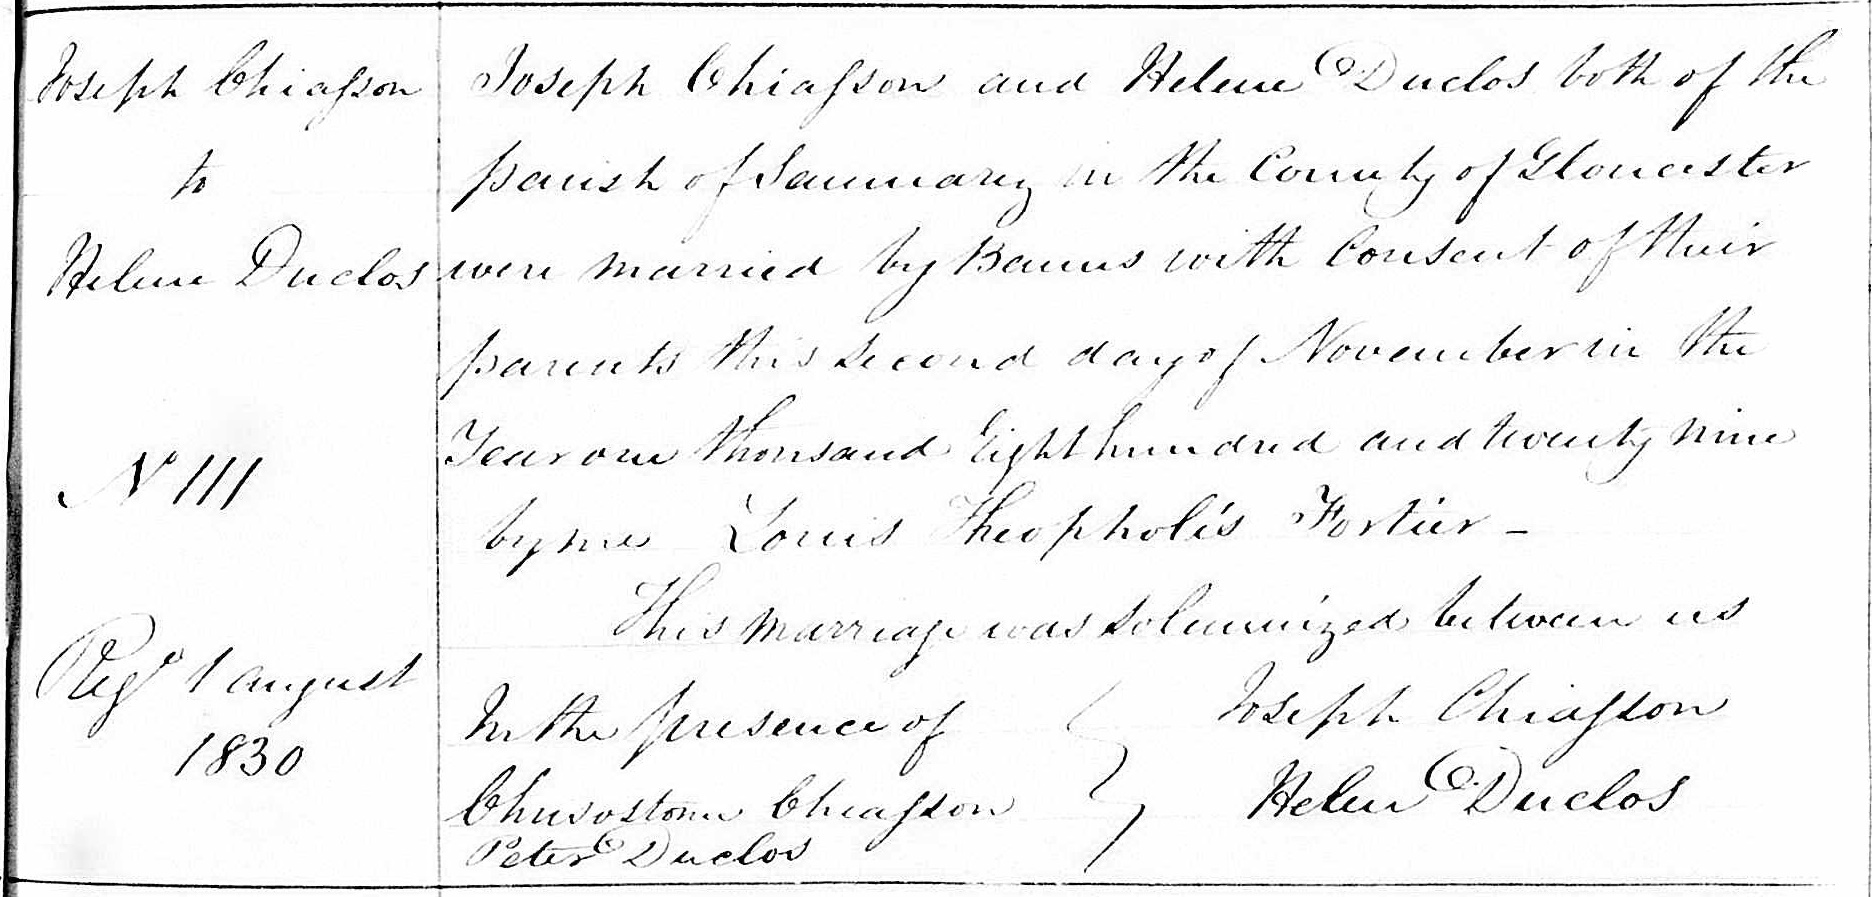 Joseph Chiasson
to
Helene Duclos
No 111
Regd 1 august
1830
Joseph Chiasson and Helene Duclos both of the
parish of Saumarez in the County of Gloucester
were married by Banns with Consent of their
parents this second day of November in the
Year one thousand Eight hundred and twenty nine
by me Louis Theopholis Fortier -
This marriage was Solemnized between us
In the presence of
Chrisostom Chiasson
Peter Duclos
Joseph Chiasson
Helen Duclos